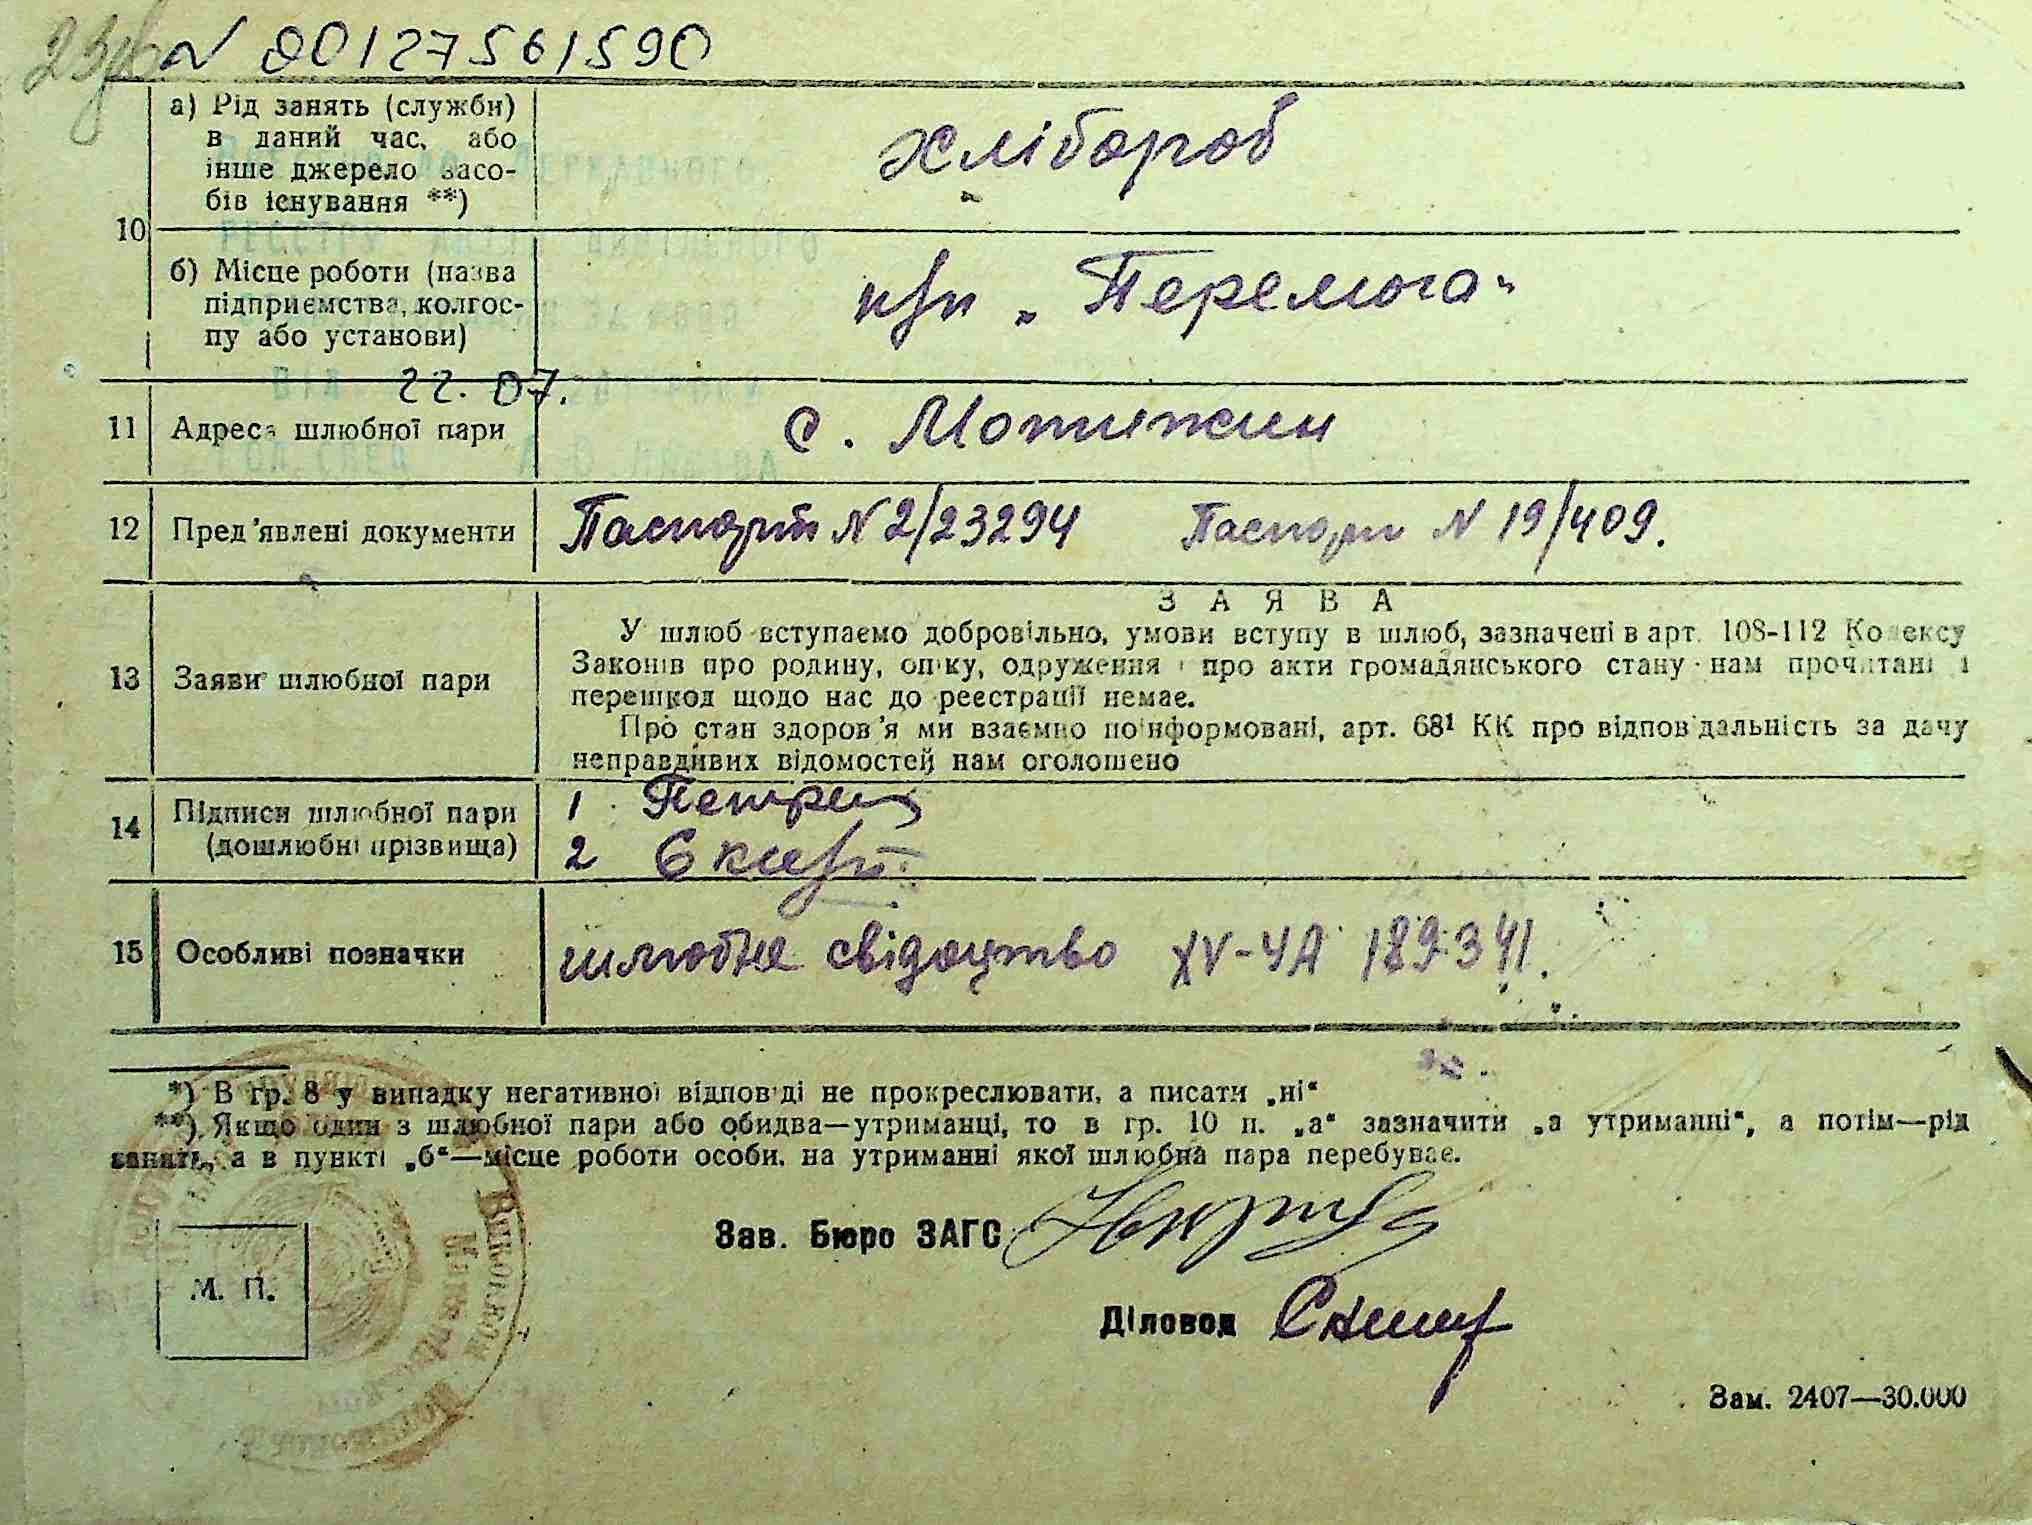 N 00127561590
а) Рід занять (служби)
в даний час, або
інше джерело засо-
бів існування **)
хлібороб
10
б) Місце роботи (назва
підприємства, колгос-
пу або установи)
к/гп „Перемога"
22.07.
11 Адреса шлюбної пари с. Мотижин
12 Пред'явлені документи Паспорт N 2/23294 Паспорт N 19/409.
ЗАЯВА
13 Заяви шлюбної пари
У шлюб вступаємо добровільно, умови вступу в шлюб, зазначені в арт. 108-112 Кодексу
Законів про родину, опіку, одруження і про акти громадянського стану нам прочитані і
перешкод щодо нас до реєстрації немає.
Про стан здоров'я ми взаємно поінформовані, арт. 68¹ КК про відповідальність за дачу
неправдивих відомостей нам оголошено
14 Підписи шлюбної пари
(дошлюбні прізвища)
1
2
15 Особливі позначки шлюбне свідоцтво XV-ЧА 189341.
*) В гр. 8 у випадку негативної відповіді не прокреслювати, а писати „ні"
**) Якщо один з шлюбної пари або обидва—утриманці, то в гр. 10 п. „а" зазначити „а утриманні", а потім—рід
занять, а в пункті „б"—місце роботи особи, на утриманні якої шлюбна пара перебуває.
Зав. Бюро ЗАГС
М. П.
Діловод
Зам. 2407—30.000